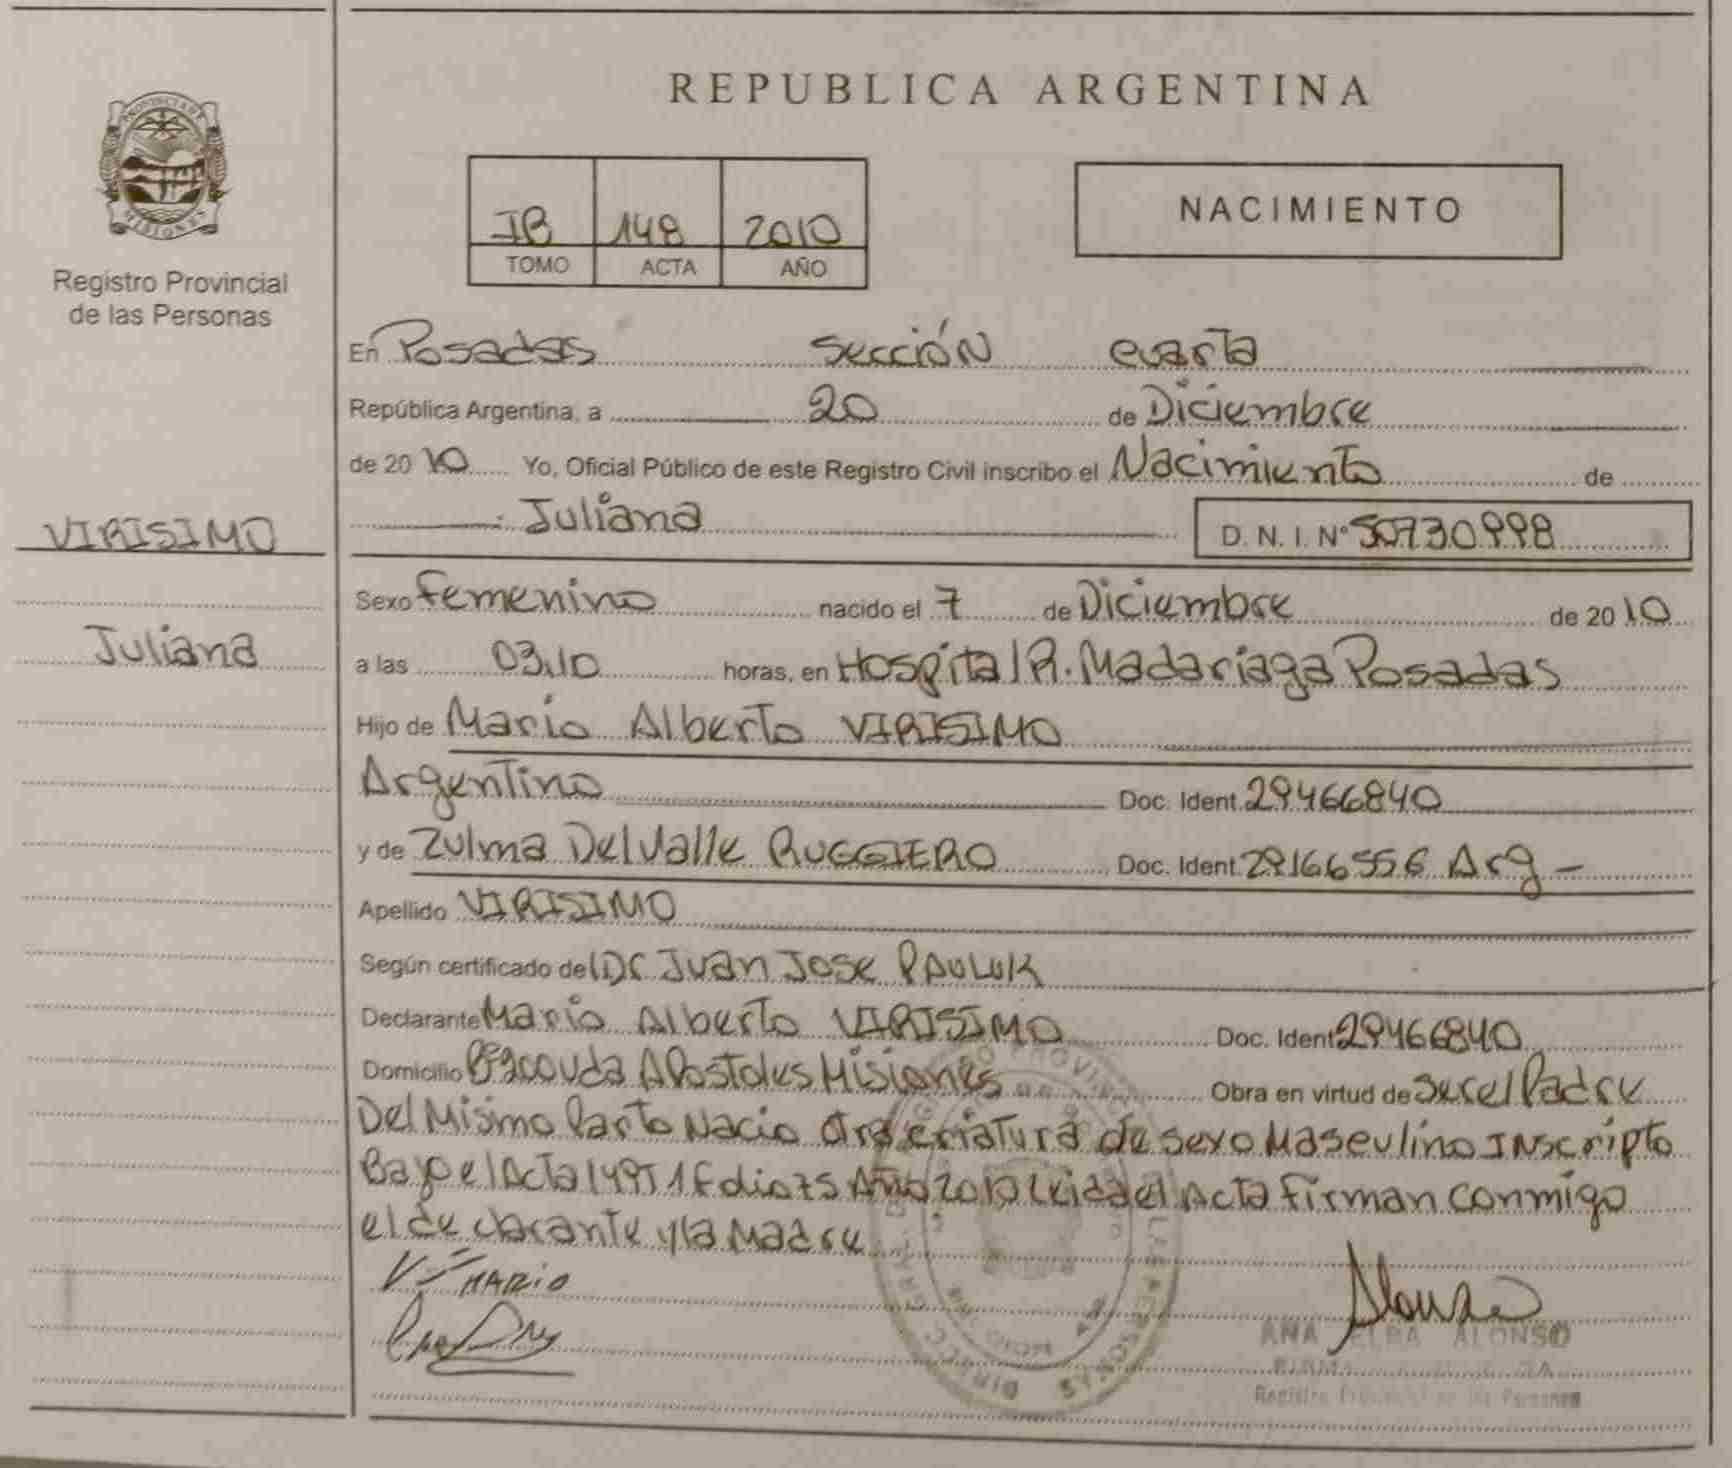 REPUBLICA ARGENTINA
PROVINCIA DE
MISIONES
Registro Provincial
de las Personas
IB 148 2010
TOMO ACTA AÑO
NACIMIENTO
En Posadas Sección cuarta
República Argentina, a 20 de Diciembre
de 2010 Yo, Oficial Público de este Registro Civil inscribo el Nacimiento de
Juliana D. N. I. N° 50730998
VIRISIMO
Juliana
Sexo Femenino nacido el 7 de Diciembre de 2010
a las 03,10 horas, en Hospital R. Madariaga Posadas
Hijo de Mario Alberto VIRISIMO
Argentino Doc. Ident. 29466840
y de Zulma Del Valle RUGGIERO Doc. Ident. 29166556 Arg -
Apellido VIRISIMO
Según certificado del Dr Juan Jose PAULUK
Declarante Mario Alberto VIRISIMO Doc. Ident 29466840
Domicilio Apostoles Misiones Obra en virtud de Ser el Padre
Del Mismo Parto Nacio otra criatura de sexo Masculino INscripto
Bajo el Acta 149 T 1 Folio 75 Año 2010 Leida el Acta Firman conmigo
el declarante y la Madre
MARIO
ANA ELBA ALONSO
Registro Provincial de las Personas